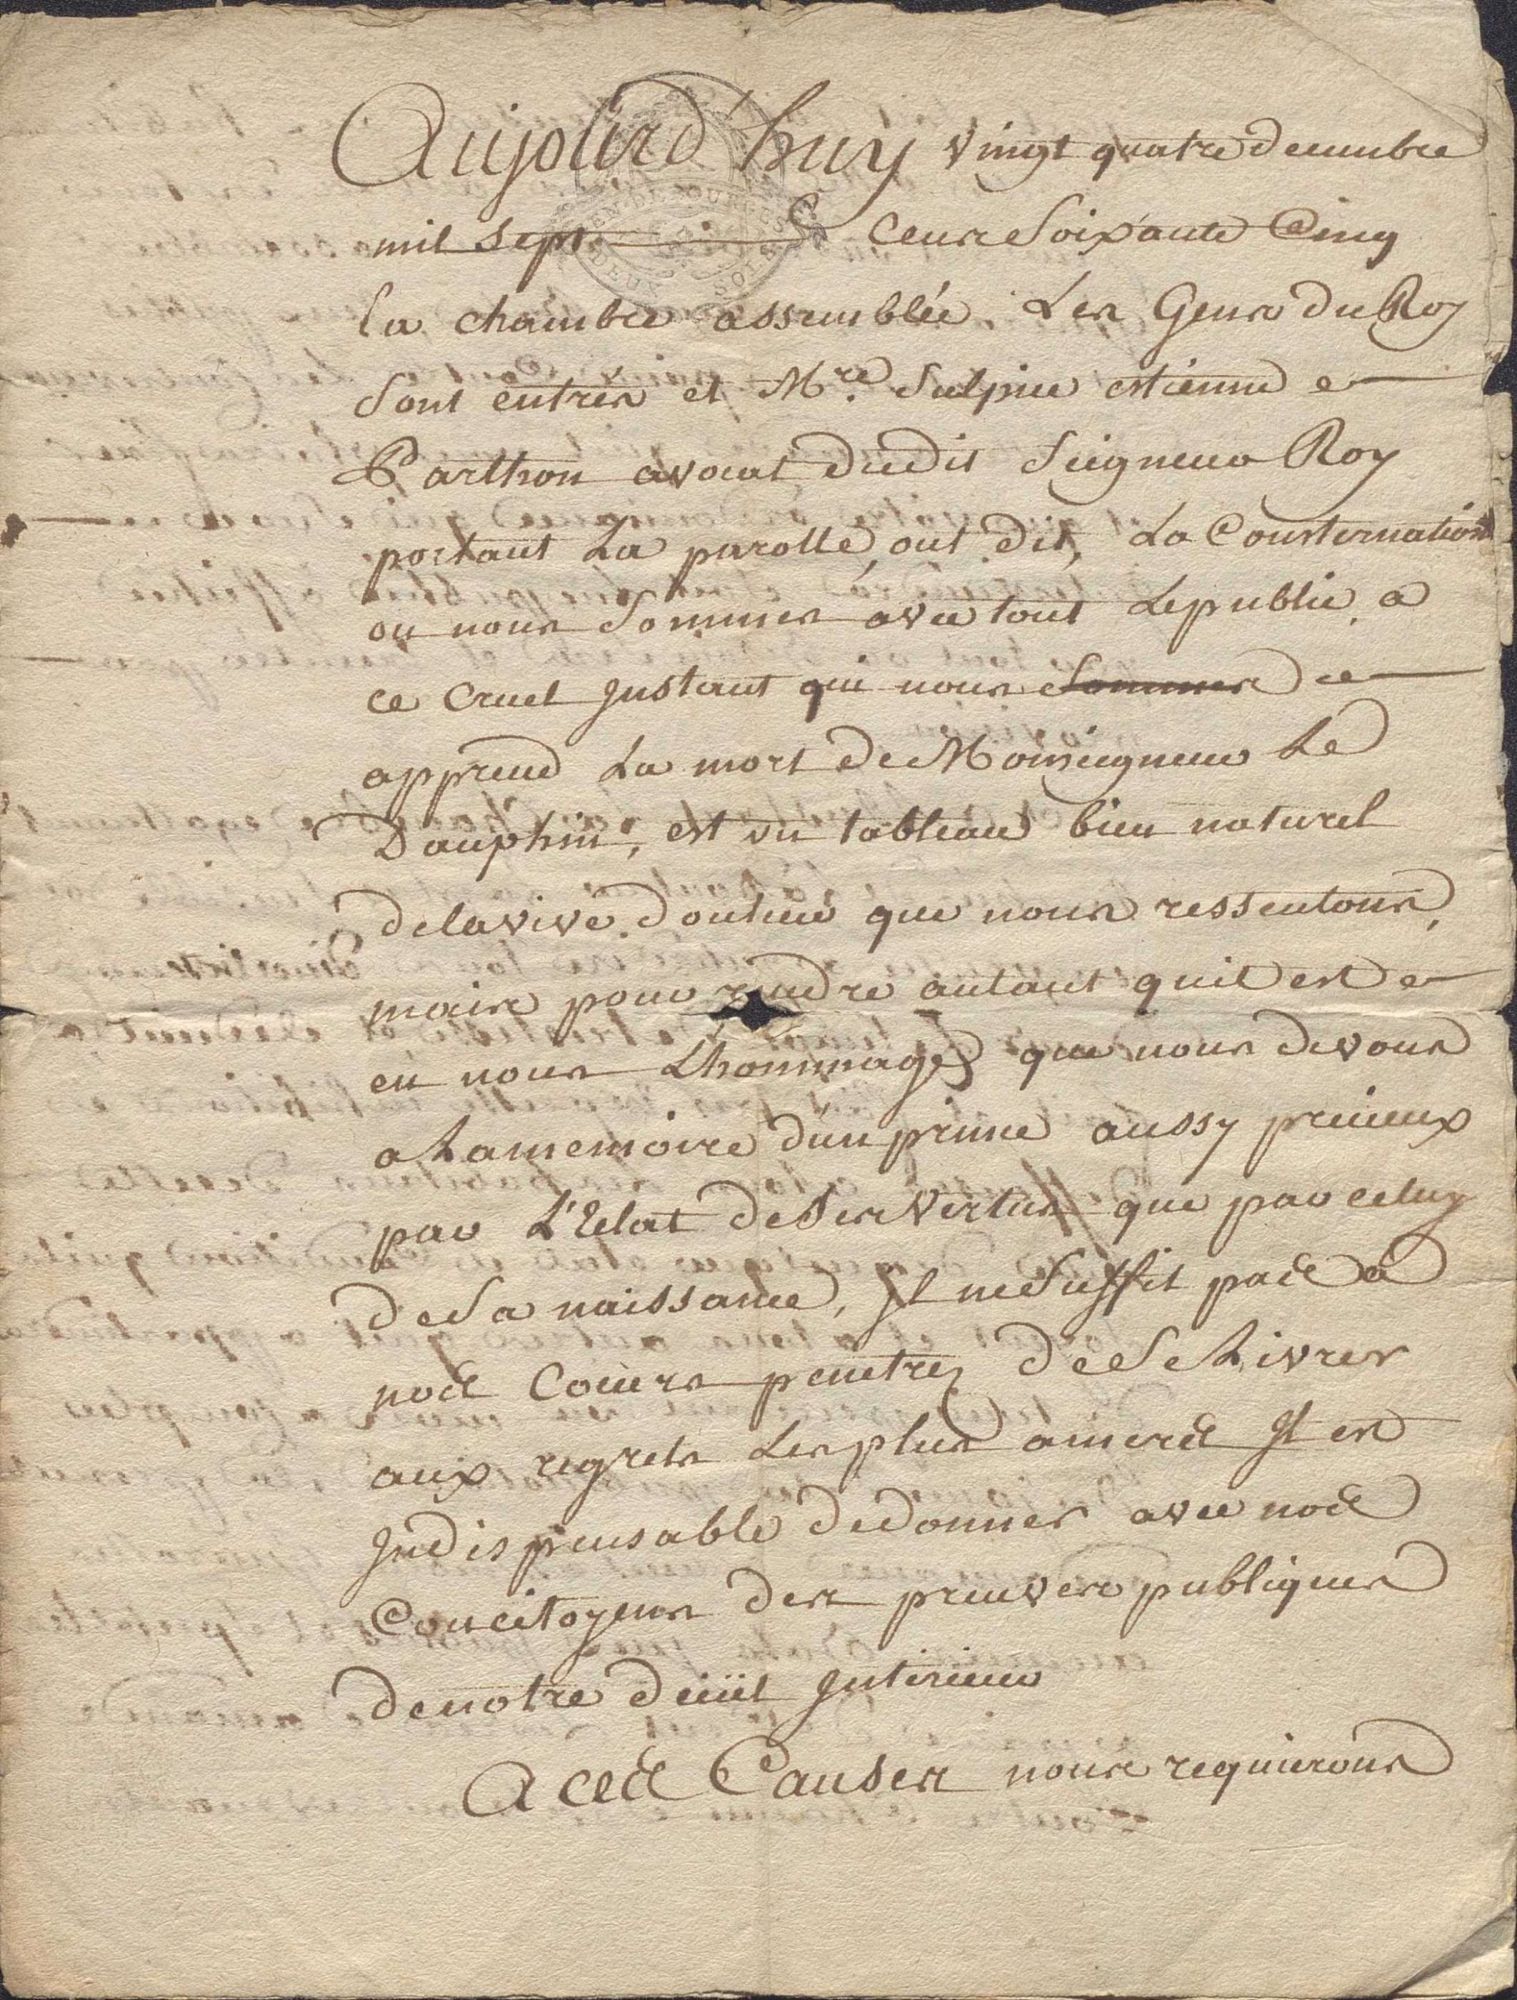 Aujourd'huy vingt quatre decembre
mil sept cens soixante Cinq
la chambre assemblée, Les Gens du Roy
sont entrés et Mre. Sulpice estienne
Parthon avocat dudit Seigneur Roy
portant La parolle, ont dit, La Consternation
ou nous Sommes avec tout Lepublic, a
ce cruel Instant qui nous Sommes
apprend La mort de Monseigneur Le
Dauphin, est un tableau bien naturel
delavive douleur que nous ressentons,
mais pour rendre autant quil est
en nous Lhommage que nous devons
a Lamemoire d'un prince aussy precieux
par L'Eclat deses Vertus que par celuy
desa naissance, Il nesuffit pas a
nos Coeurs penetrez dese Livrer
aux regrets Les plus amers Il est
Indispensable dedonner avec nos
Concitoyens des preuves publiques
denotre deüil Interieur
A ces Causes nous requierons
GEN DE BOURGES
DEUX SOLS